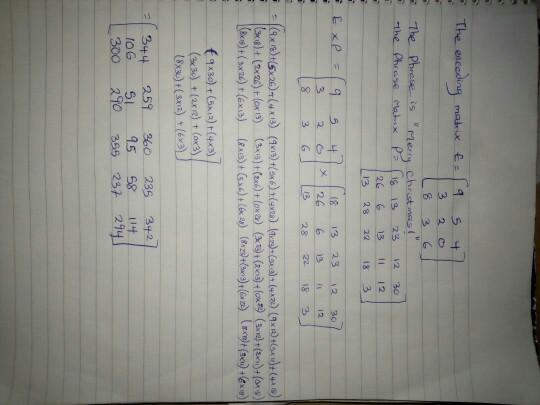 The encoding matrix E = [9 5 4
3 2 0
8 3 6]
The Phrase is "Merry Christmas!"
The Phrase Matrix P = [18 13 23 12 30
26 6 13 11 12
13 28 22 18 3]
E x P = [9 5 4
3 2 0
8 3 6] x [18 13 23 12 30
26 6 13 11 12
13 28 22 18 3]
= [(9x18)+(5x26)+(4x13) (9x13)+(5x6)+(4x28) (9x23)+(5x13)+(4x22) (9x12)+(5x11)+(4x18)
(3x18)+(2x26)+(0x13) (3x13)+(2x6)+(0x28) (3x23)+(2x13)+(0x22) (3x12)+(2x11)+(0x18)
(8x18)+(3x26)+(6x13) (8x13)+(3x6)+(6x28) (8x23)+(3x13)+(6x22) (8x12)+(3x11)+(6x18)
(9x30)+(5x12)+(4x3)
(3x30)+(2x12)+(0x3)
(8x30)+(3x12)+(6x3)]
= [344 259 360 235 342
106 51 95 58 114
300 290 355 237 294]